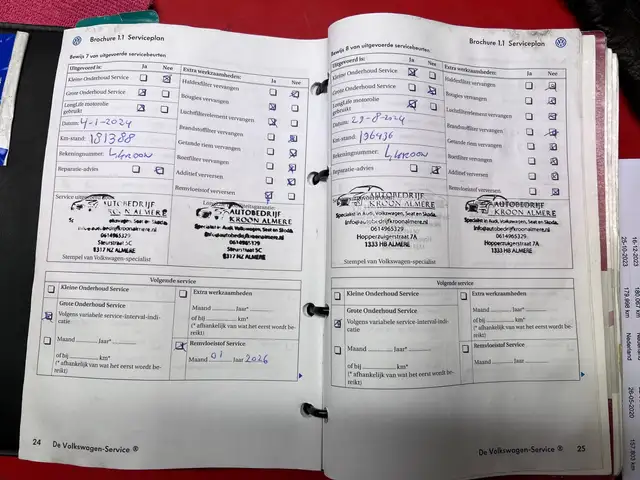 Brochure 1.1 Serviceplan
Bewijs 7 van uitgevoerde servicebeurten
Uitgevoerd is: Ja Nee
Kleine Onderhoud Service
Grote Onderhoud Service
LongLife motorolie
gebruikt
Datum: 4-1-2024
Km-stand: 181388
Rekeningnummer:
Reparatie-advies
Extra werkzaamheden: Ja Nee
Haldexfilter vervangen
Bougies vervangen
Luchtfilterelement vervangen
Brandstoffilter vervangen
Getande riem vervangen
Roetfilter vervangen
Additief verversen
Remvloeistof verversen
AUTOBEDRIJF
KROON ALMERE
info@autobedrijfkroonalmere.nl
0614965329
Steurstraat 5C
1317 NZ ALMERE
Stempel van Volkswagen-specialist
AUTOBEDRIJF
KROON ALMERE
Specialist in Audi, Volkswagen, Seat en Skoda.
info@autobedrijfkroonalmere.nl
0614965329
Steurstraat 5C
1317 NZ ALMERE
Volgende service
Kleine Onderhoud Service
Grote Onderhoud Service
Volgens variabele service-interval-indi-
catie
Maand Jaar*
of bij km*
(* afhankelijk van wat het eerst wordt be-
reikt)
Extra werkzaamheden
Maand Jaar*
of bij km*
(* afhankelijk van wat het eerst wordt be-
reikt)
Remvloeistof Service
Maand 01 Jaar 2026
24 De Volkswagen-Service ®
Brochure 1.1 Serviceplan
Bewijs 8 van uitgevoerde servicebeurten
Uitgevoerd is: Ja Nee
Kleine Onderhoud Service
Grote Onderhoud Service
LongLife motorolie
gebruikt
Datum: 29-8-2024
Km-stand: 196436
Rekeningnummer:
Reparatie-advies
Extra werkzaamheden: Ja Nee
Haldexfilter vervangen
Bougies vervangen
Luchtfilterelement vervangen
Brandstoffilter vervangen
Getande riem vervangen
Roetfilter vervangen
Additief verversen
Remvloeistof verversen
AUTOBEDRIJF
KROON ALMERE
Specialist in Audi, Volkswagen, Seat en Skoda.
info@autobedrijfkroonalmere.nl
0614965329
Hopperzuigerstraat 7A
1333 HB ALMERE
Stempel van Volkswagen-specialist
AUTOBEDRIJF
KROON ALMERE
Specialist in Audi, Volkswagen, Seat en Skoda.
info@autobedrijfkroonalmere.nl
0614965329
Hopperzuigerstraat 7A
1333 HB ALMERE
Volgende service
Kleine Onderhoud Service
Grote Onderhoud Service
Volgens variabele service-interval-indi-
catie
Maand Jaar*
of bij km*
(* afhankelijk van wat het eerst wordt be-
reikt)
Extra werkzaamheden
Maand Jaar*
of bij km*
(* afhankelijk van wat het eerst wordt be-
reikt)
Remvloeistof Service
Maand Jaar
De Volkswagen-Service ® 25
16-12-2023
25-10-2023
Nederland
Nederland
26-05-2020